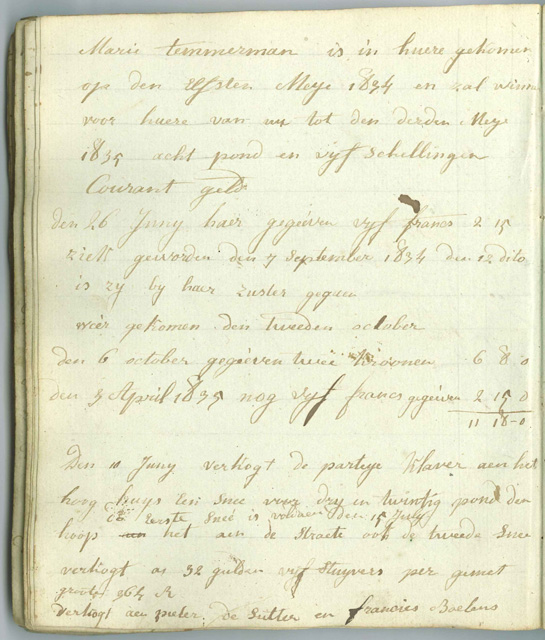 Marie temmerman is in huere gekomen
op den Elfsten Meye 1834 en zal winn
voor huere van nu tot den derden Meye
1835 acht pond en vyf schellingen
Courant geld
den 26 Juny haer gegieven vyf francs 2 15
ziek geworden den 7 September 1834 den 12 dito
is zy by haer zuster gegaen
weer gekomen den tweeden october
den 6 october gegieven twee kroonen 6 8 0
den 3 April 1835 nog vyf francs gegieven 2 15 0
11 18-0
Den 10 Juny verkogt de partye klaver aen het
hoog huys Een snee voor dry en twintig pond den
Eerste Sneé is voldaen den 15 July
hoop het aen de Straete ook de tweede Snee
verkogt as 32 gulden vyf stuyvers per gemet
groote 264 R
Verkogt aen pieter de Sutter en francies Boelens